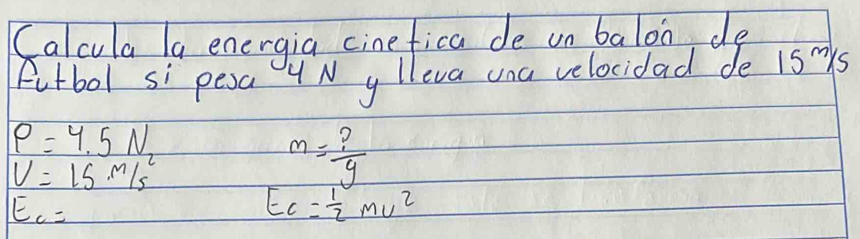 Calcula la energia cinetica de un balón de
futbol si pesa 4 N y lleva una velocidad de 15 m/s
P = 4.5 N m = ?/g
V = 15 m/s²
Ec = Ec = 1/2 mv²